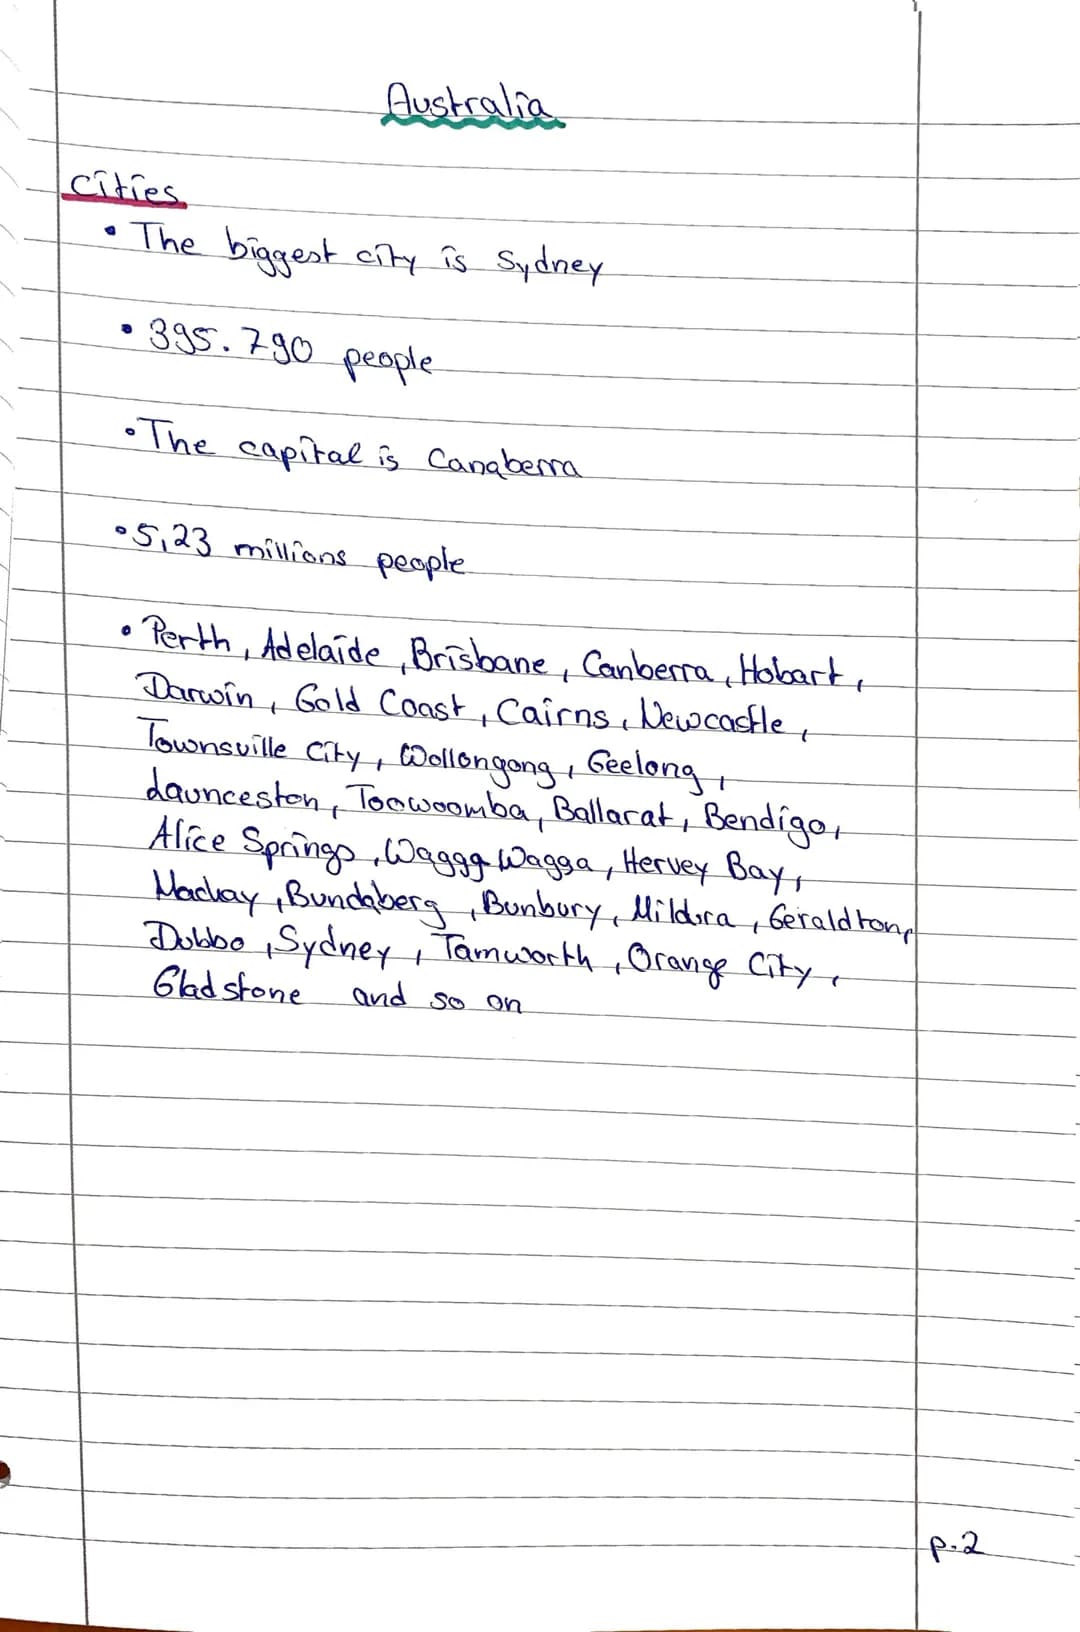 Australia
Cities
• The biggest city is Sydney
• 395.790 people
• The capital is Canaberra
• 5,23 millions people
• Perth, Adelaide, Brisbane, Canberra, Hobart,
Darwin, Gold Coast, Cairns, Newcastle,
Townsville City, Wollongong, Geelong,
Launceston, Toowoomba, Ballarat, Bendigo,
Alice Springs, Waggg Wagga, Hervey Bay,
Mackay, Bundaberg, Bunbury, Mildura, Geraldton,
Dubbo, Sydney, Tamworth, Orange City,
Gladstone and so on
p.2